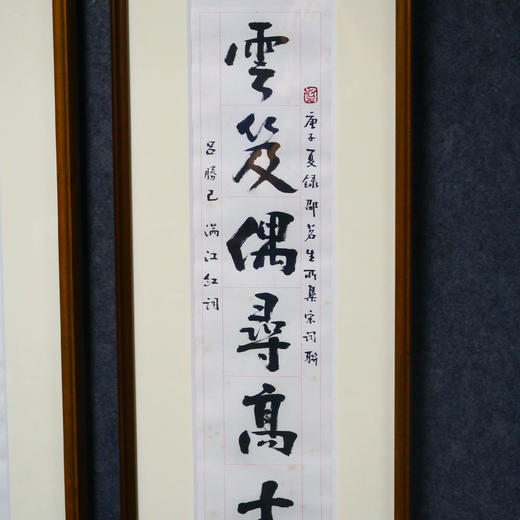 庚子夏録邵茗生所集宋词聯
雲笈偶尋高士
吕勝己满江红词